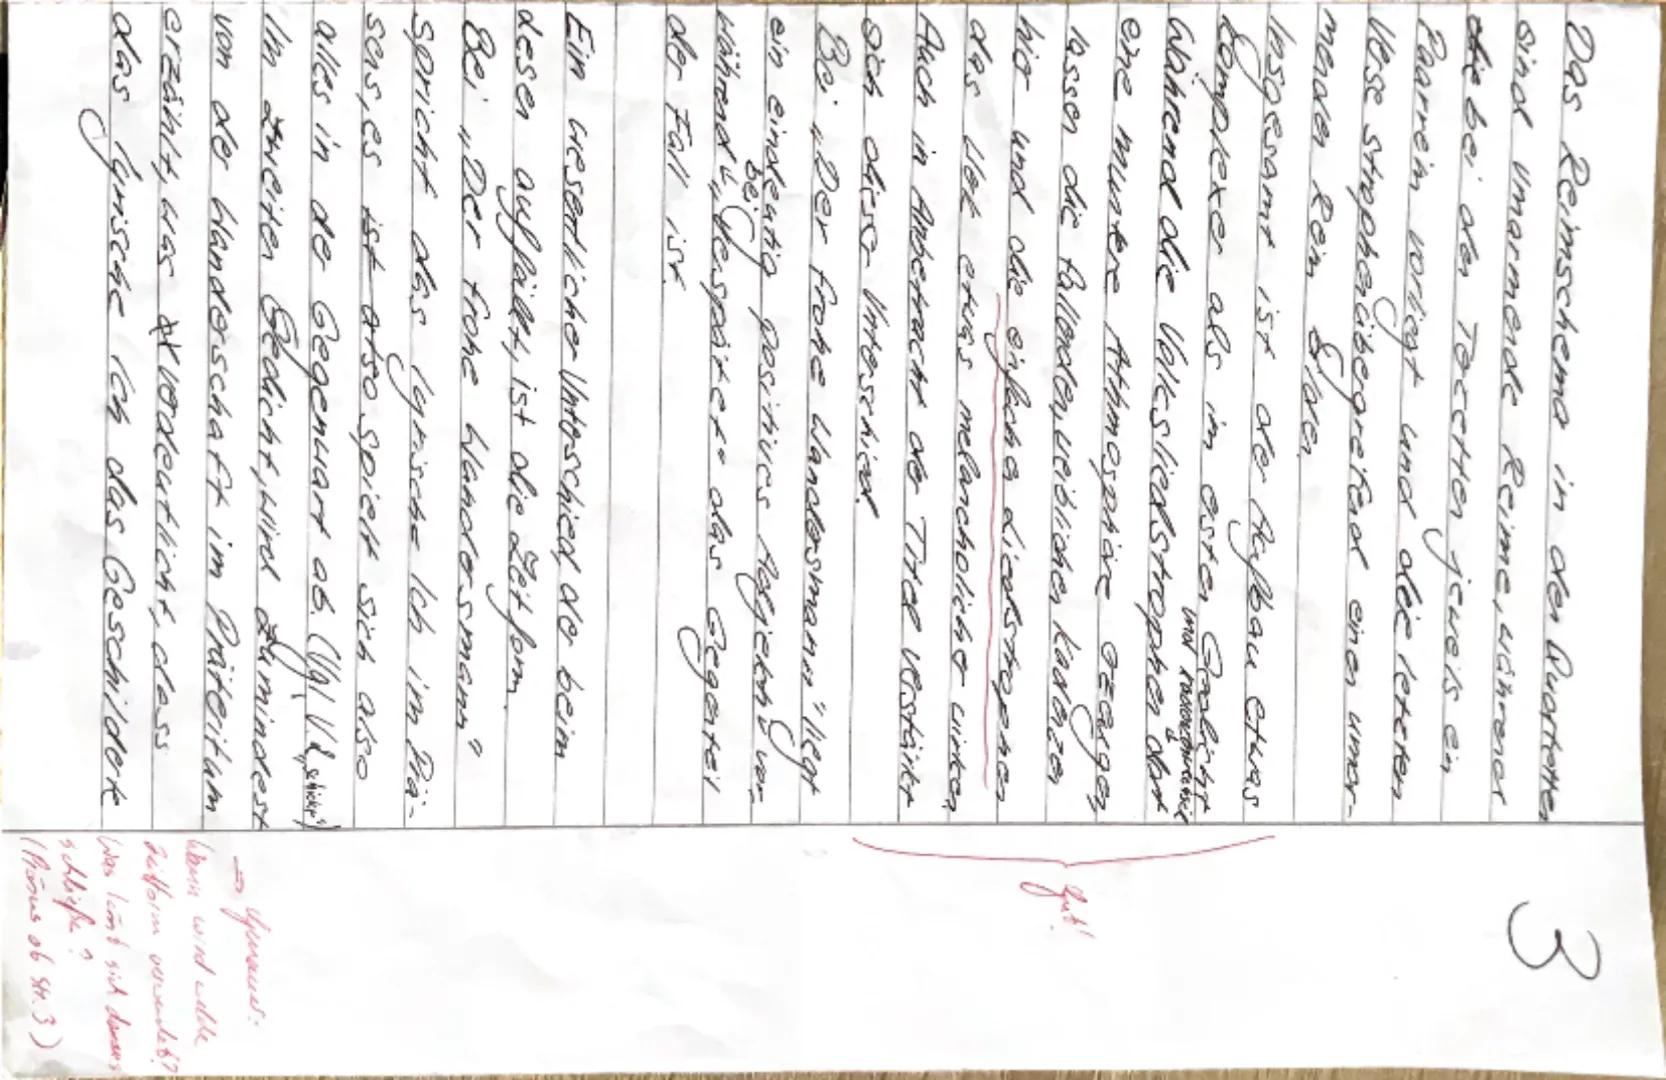 Das Reimschema in den Quartetten
sind umarmende Reime, während
bei den Terzetten jeweils ein
Paarreim vorliegt und die letzten
Verse strophenübergreifend einen umar-
menden Reim bilden.
Insgesamt ist der Aufbau etwas
komplexer als im ersten Gedicht.
Während die Volksliedstrophen dort
eine muntere Athmosphäre erzeugen
lassen die fallenden, weiblichen Kadenzen
hie und die einfachen Liedstrophen
das Werk etwas melancholischer wirken.
Auch in Anbetracht der Titel verstärkt
sich dieser Unterschied.
Bei „Der frohe Wandersmann" liegt
ein eindeutig positives Adjektiv vor,
während bei „Verspätet" das Gegenteil
der Fall ist.
Ein wesentlicher Unterschied, der beim
lesen auffällt, ist die Zeitform.
Bei „Der frohe Wandersmann"
spricht das lyrische Ich im Prä-
sens, es ist also spielt sich also
alles in der Gegenwart ab. (Vgl V.1 „schickt")
Im zweiten Gedicht, wird zumindest
von der Wanderschaft im Präteritum
erzählt, was verdeutlicht, dass
das lyrische Ich das Geschilderte
3
Gut!
→ Genauer:
Wann wird welche
Zeitform verwendet?
Was lässt sich daraus
schließen?
(Präsens ab Str. 3)